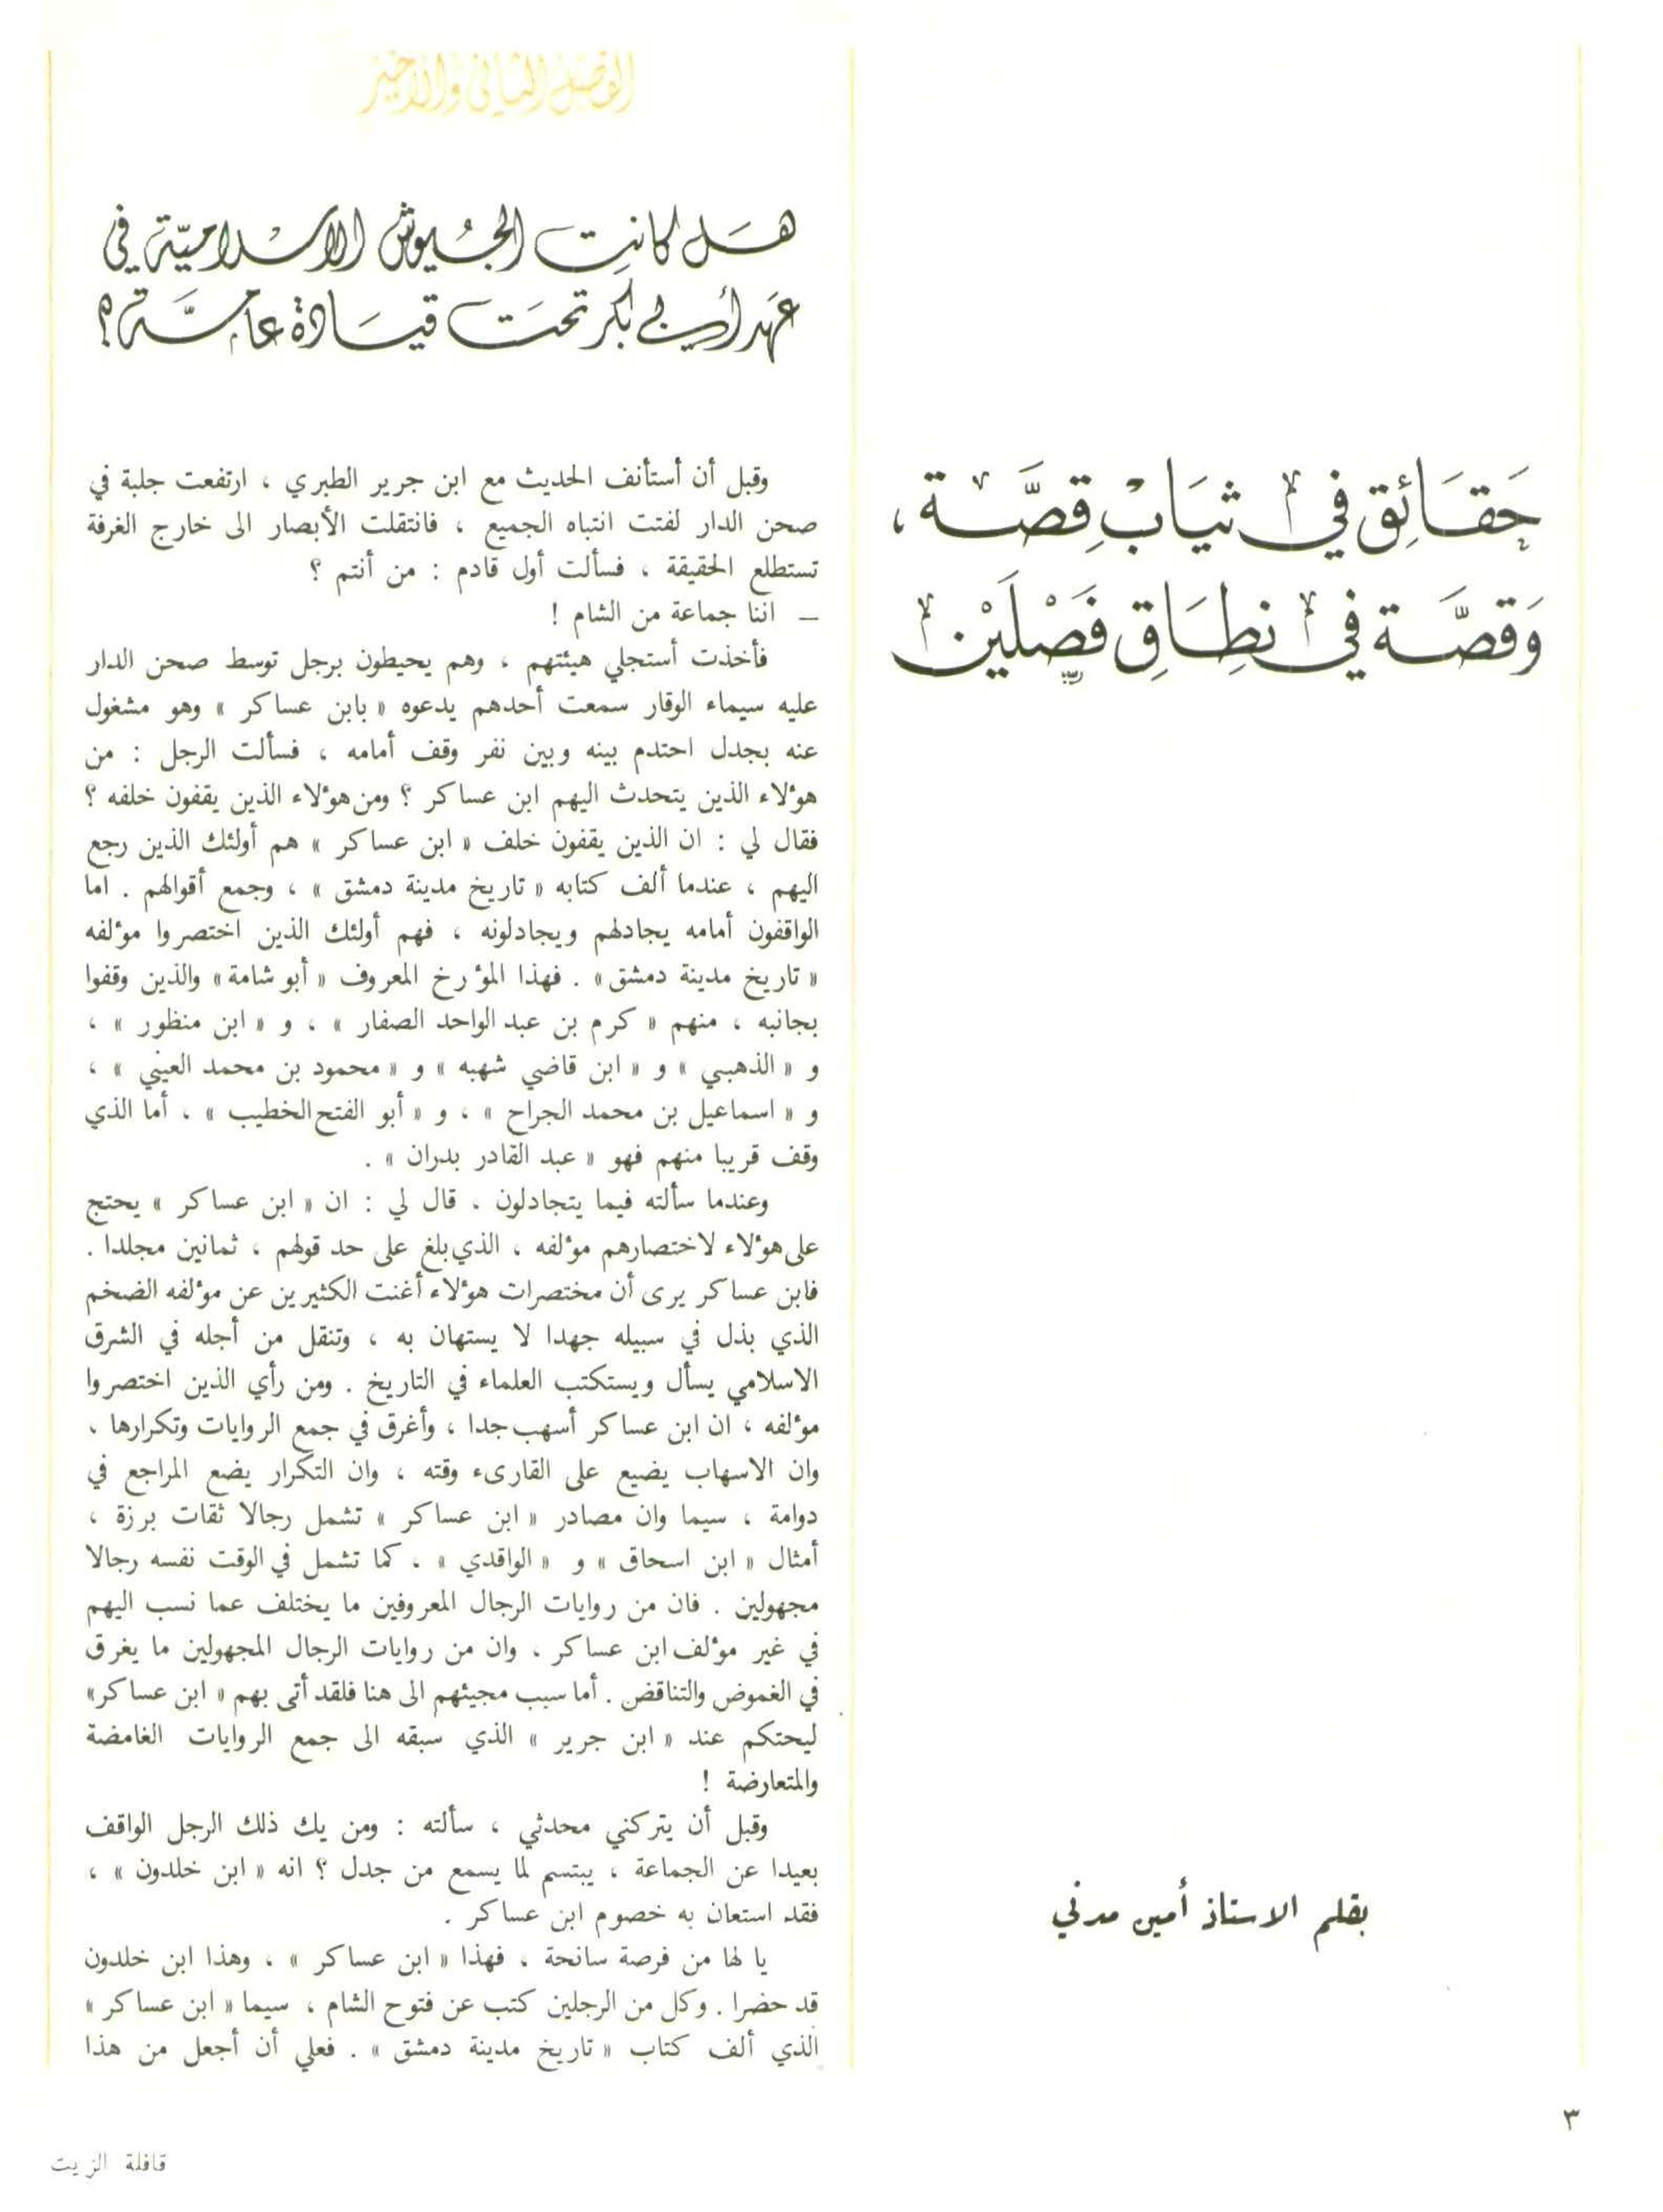 حَقَائِق في ثيَابْ قِصَّة،
وَقصَّة في نطِاَقِ فَصْلَيْن
بقلم الاستاذ أمين مدني
الفصل الثاني والأخير
هَل كانت الجُيوش الاسْلاميّة في
عَهد أبي بكر تحَت قيَادة عامَّة؟
وقبل أن أستأنف الحديث مع ابن جرير الطبري ، ارتفعت جلبة في
صحن الدار لفتت انتباه الجميع ، فانتقلت الأبصار الى خارج الغرفة
تستطلع الحقيقة ، فسألت أول قادم : من أنتم ؟
– اننا جماعة من الشام !
فأخذت أستجلي هيئتهم ، وهم يحيطون برجل توسط صحن الدار
عليه سيماء الوقار سمعت أحدهم يدعوه « بابن عساكر » وهو مشغول
عنه بجدل احتدم بينه وبين نفر وقف أمامه ، فسألت الرجل : من
هؤلاء الذين يتحدث اليهم ابن عساكر ؟ ومن هؤلاء الذين يقفون خلفه ؟
فقال لي : ان الذين يقفون خلف « ابن عساكر » هم أولئك الذين رجع
اليهم ، عندما ألف كتابه « تاريخ مدينة دمشق » ، وجمع أقوالهم . اما
الواقفون أمامه يجادلهم ويجادلونه ، فهم أولئك الذين اختصروا مؤلفه
« تاريخ مدينة دمشق » . فهذا المؤرخ المعروف « أبو شامة » والذين وقفوا
بجانبه ، منهم « كرم بن عبد الواحد الصفار » ، و « ابن منظور » ،
و « الذهبي » و « ابن قاضي شهبه » و « محمود بن محمد العيني » ،
و « اسماعيل بن محمد الجراح » ، و « أبو الفتح الخطيب » ، أما الذي
وقف قريبا منهم فهو « عبد القادر بدران » .
وعندما سألته فيما يتجادلون ، قال لي : ان « ابن عساكر » يحتج
على هؤلاء لاختصارهم مؤلفه ، الذي بلغ على حد قولهم ، ثمانين مجلدا .
فابن عساكر يرى أن مختصرات هؤلاء أغنت الكثيرين عن مؤلفه الضخم
الذي بذل في سبيله جهدا لا يستهان به ، وتنقل من أجله في الشرق
الاسلامي يسأل ويستكتب العلماء في التاريخ . ومن رأي الذين اختصروا
مؤلفه ، ان ابن عساكر أسهب جدا ، وأغرق في جمع الروايات وتكرارها ،
وان الاسهاب يضيع على القارىء وقته ، وان التكرار يضع المراجع في
دوامة ، سيما وان مصادر « ابن عساكر » تشمل رجالا ثقات برزة ،
أمثال « ابن اسحاق » و « الواقدي » ، كما تشمل في الوقت نفسه رجالا
مجهولين . فان من روايات الرجال المعروفين ما يختلف عما نسب اليهم
في غير مؤلف ابن عساكر ، وان من روايات الرجال المجهولين ما يغرق
في الغموض والتناقض . أما سبب مجيئهم الى هنا فلقد أتى بهم « ابن عساكر»
ليحتكم عند « ابن جرير » الذي سبقه الى جمع الروايات الغامضة
والمتعارضة !
وقبل أن يتركني محدثي ، سألته : ومن يك ذلك الرجل الواقف
بعيدا عن الجماعة ، يبتسم لما يسمع من جدل ؟ انه « ابن خلدون » ،
فقد استعان به خصوم ابن عساكر .
يا لها من فرصة سانحة ، فهذا « ابن عساكر » ، وهذا ابن خلدون
قد حضرا . وكل من الرجلين كتب عن فتوح الشام ، سيما « ابن عساكر »
الذي ألف كتاب « تاريخ مدينة دمشق » . فعلي أن أجعل من هذا
٣
قافلة الزيت